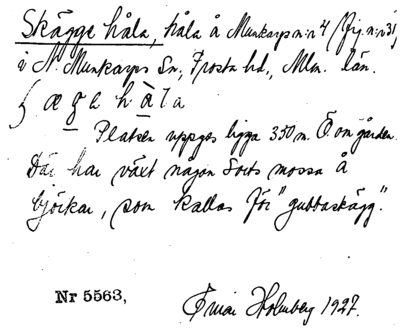 Skägge håla, håla å Munkarp n:r 4 (fig. n:r 31)
i N. Munkarps Sn, Frosta hd., Mlm. län.
æ g e h à l a
Platsen uppges ligga 350 m. Ö om gården.
Där har växt någon sorts mossa å
björkar, som kallas för "gubbaskägg".
Nr 5563, Ernir Holmberg 1927.